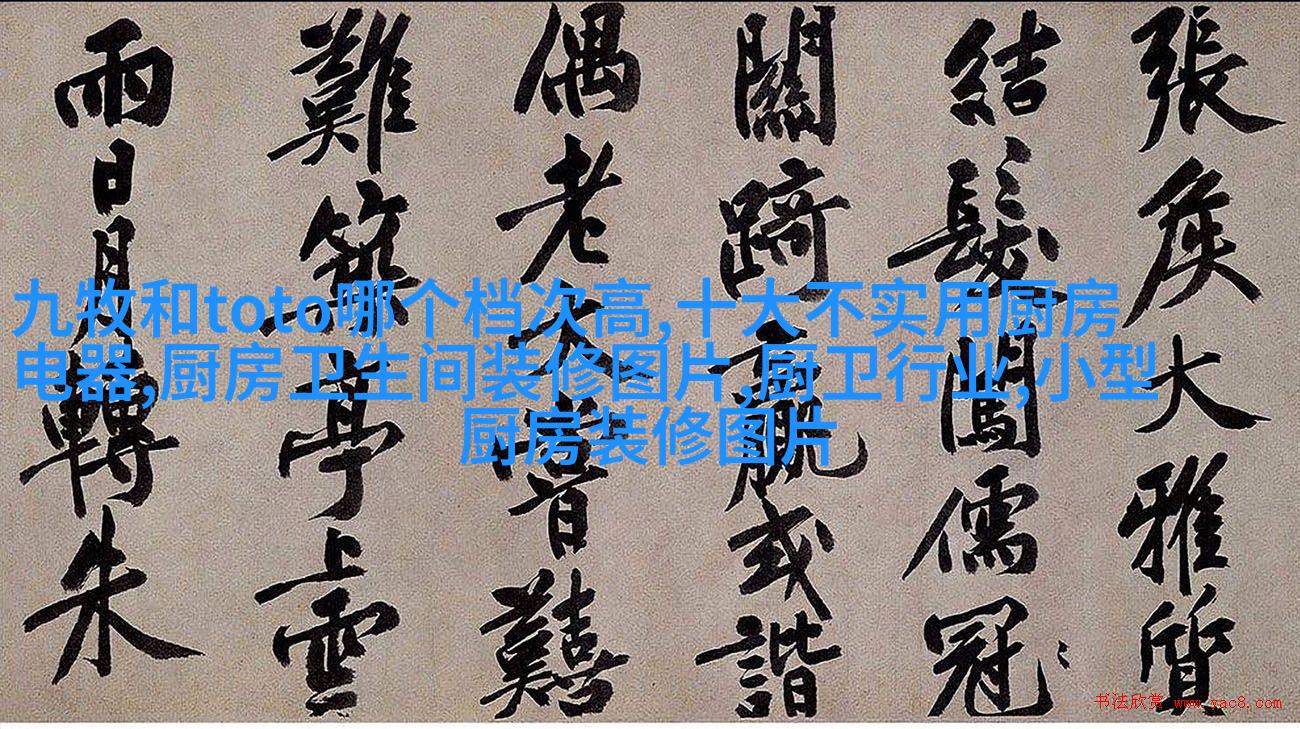 九牧和toto哪个档次高,十大不实用厨房
电器,厨房卫生间装修图片,厨卫行业,小型
厨房装修图片
張矦大雅質
結髮闖儒冠
關踦或諧
偶老昔囏
難築亭上雲
雨日月轉朱
书法欣赏 www.yac8.com